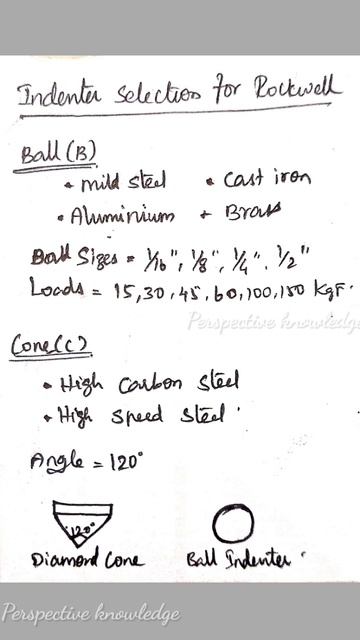 Indenter Selection for Rockwell
Ball (B)
• mild steel • Cast iron
• Aluminium • Brass
Ball Sizes = 1/16", 1/8", 1/4", 1/2"
Loads = 15, 30, 45, 60, 100, 150 KgF.
Perspective knowledge
Cone (C)
• High Carbon Steel
• High Speed Steel
Angle = 120°
120°
Diamond Cone Ball Indenter
Perspective knowledge